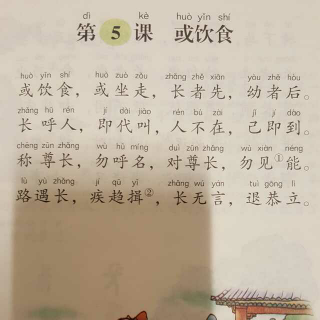 dì kè huò yǐn shí
第5课 或饮食
huò yǐn shí huò zuò zǒu zhǎng zhě xiān yòu zhě hòu
或饮食，或坐走，长者先，幼者后。
zhǎng hū rén jí dài jiào
长呼人，即代叫，人不在，己即到。
chēng zūn zhǎng wù hū míng duì zūn zhǎng wù xiàn néng
称尊长，勿呼名，对尊长，勿见①能。
lù yù zhǎng jí qū yī zhǎng wú yán tuì gōng lì
路遇长，疾趋揖②，长无言，退恭立。